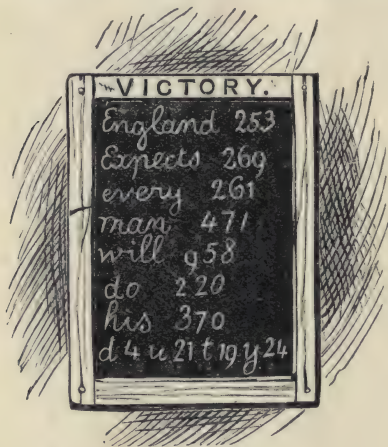 VICTORY.
England 253
Expects 269
every 261
man 471
will 958
do 220
his 370
d 4 u 21 t 19 y 24